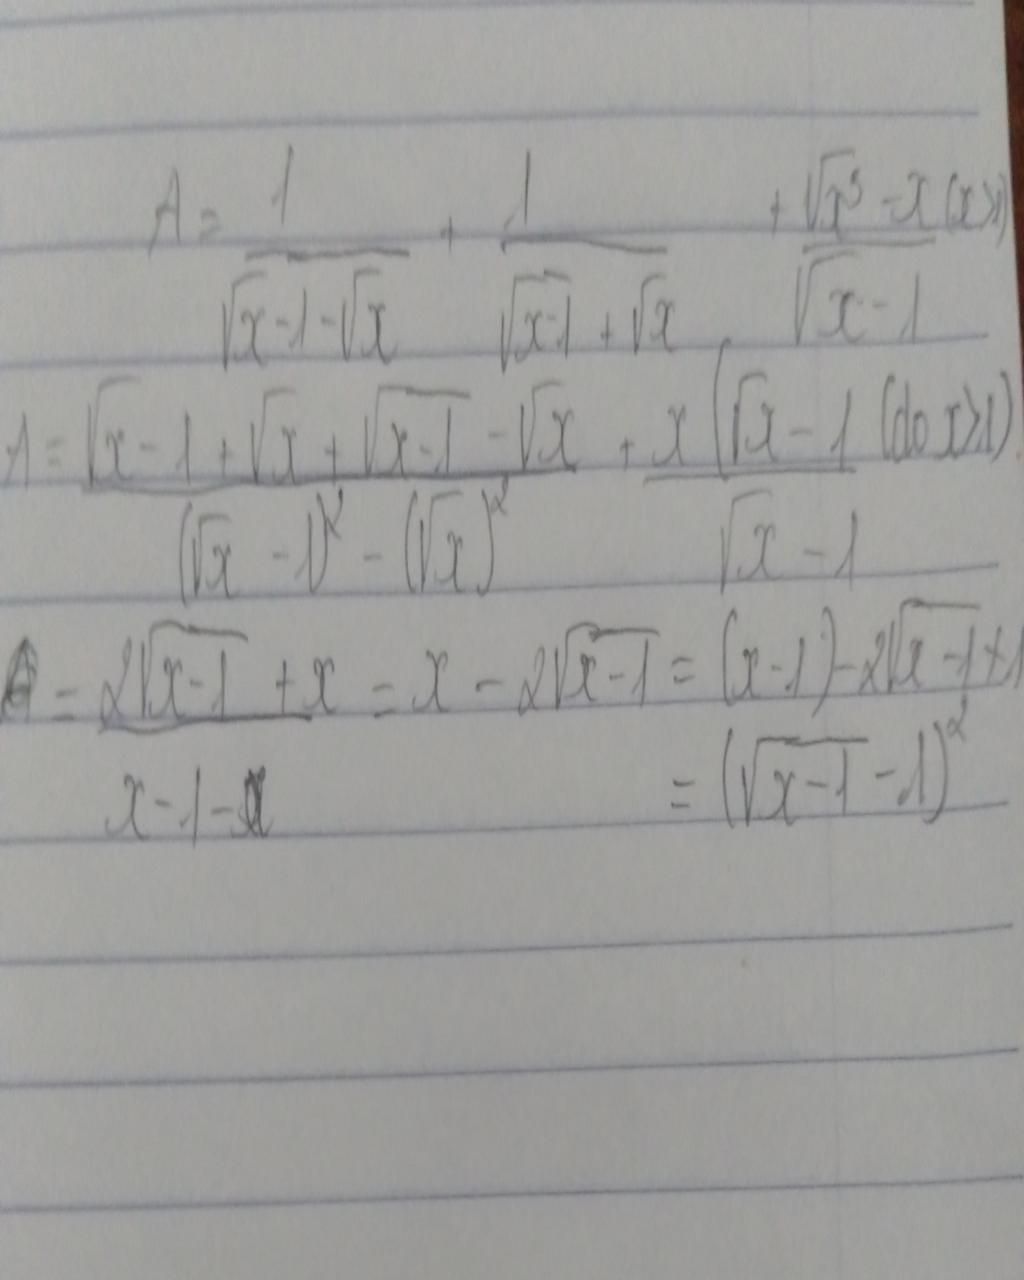 A = 1/(√x-1-√x) + 1/(√x-1 + √x) + (√x³ - x)/(√x - 1) (x>1)
A = (√x-1 + √x + √x-1 - √x)/((√x - 1)² - (√x)²) + x(√x - 1/(√x - 1) (do x>1)
A = 2√x-1/(x-1-x) + x = x - 2√x-1 = (x-1) - 2√x-1 + 1
= (√x-1 - 1)²